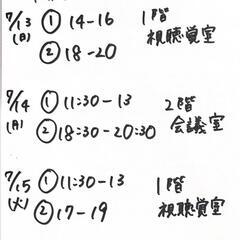 7/13 ① 14-16 1階
(日) 視聴覚室
② 18-20
7/14 ① 11:30-13 2階
(月) ② 18:30-20:30 会議室
7/15 ① 11:30-13 1階
(火) ② 17-19 視聴覚室